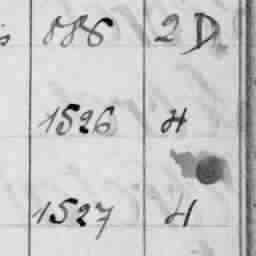 886 2 D
1526 H
1527 H